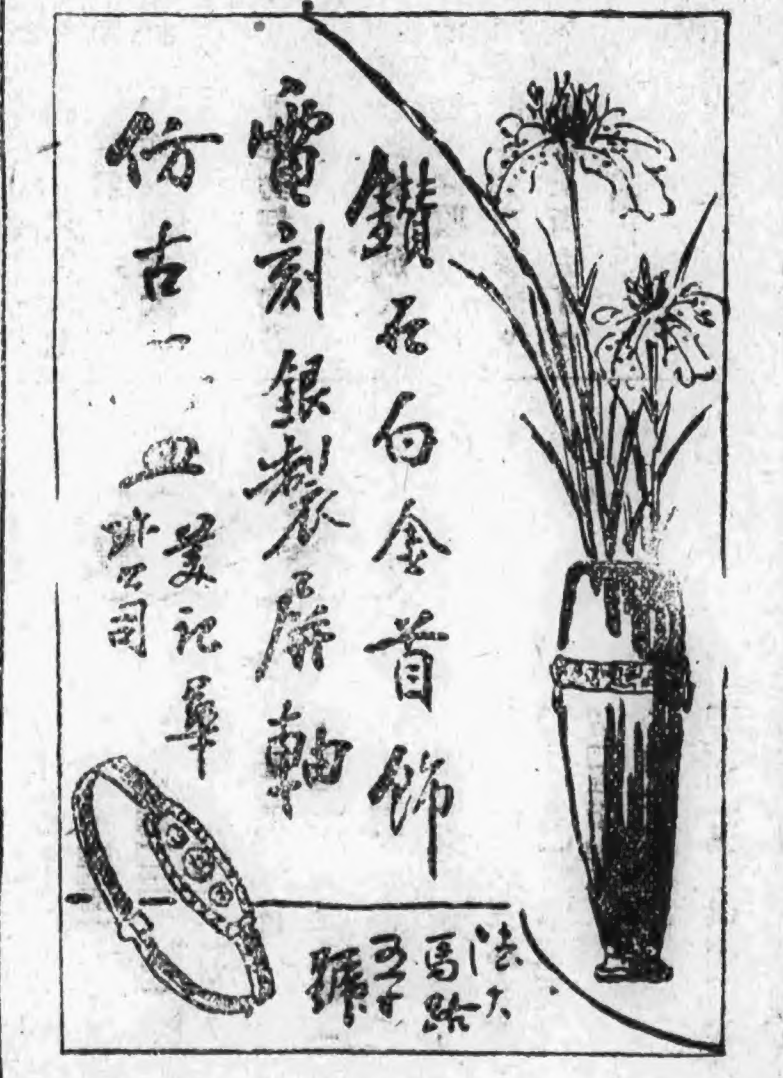 鑽石白金首飾
電刻銀製屏軸
仿古一皿
美記
公司
法大
馬路
號